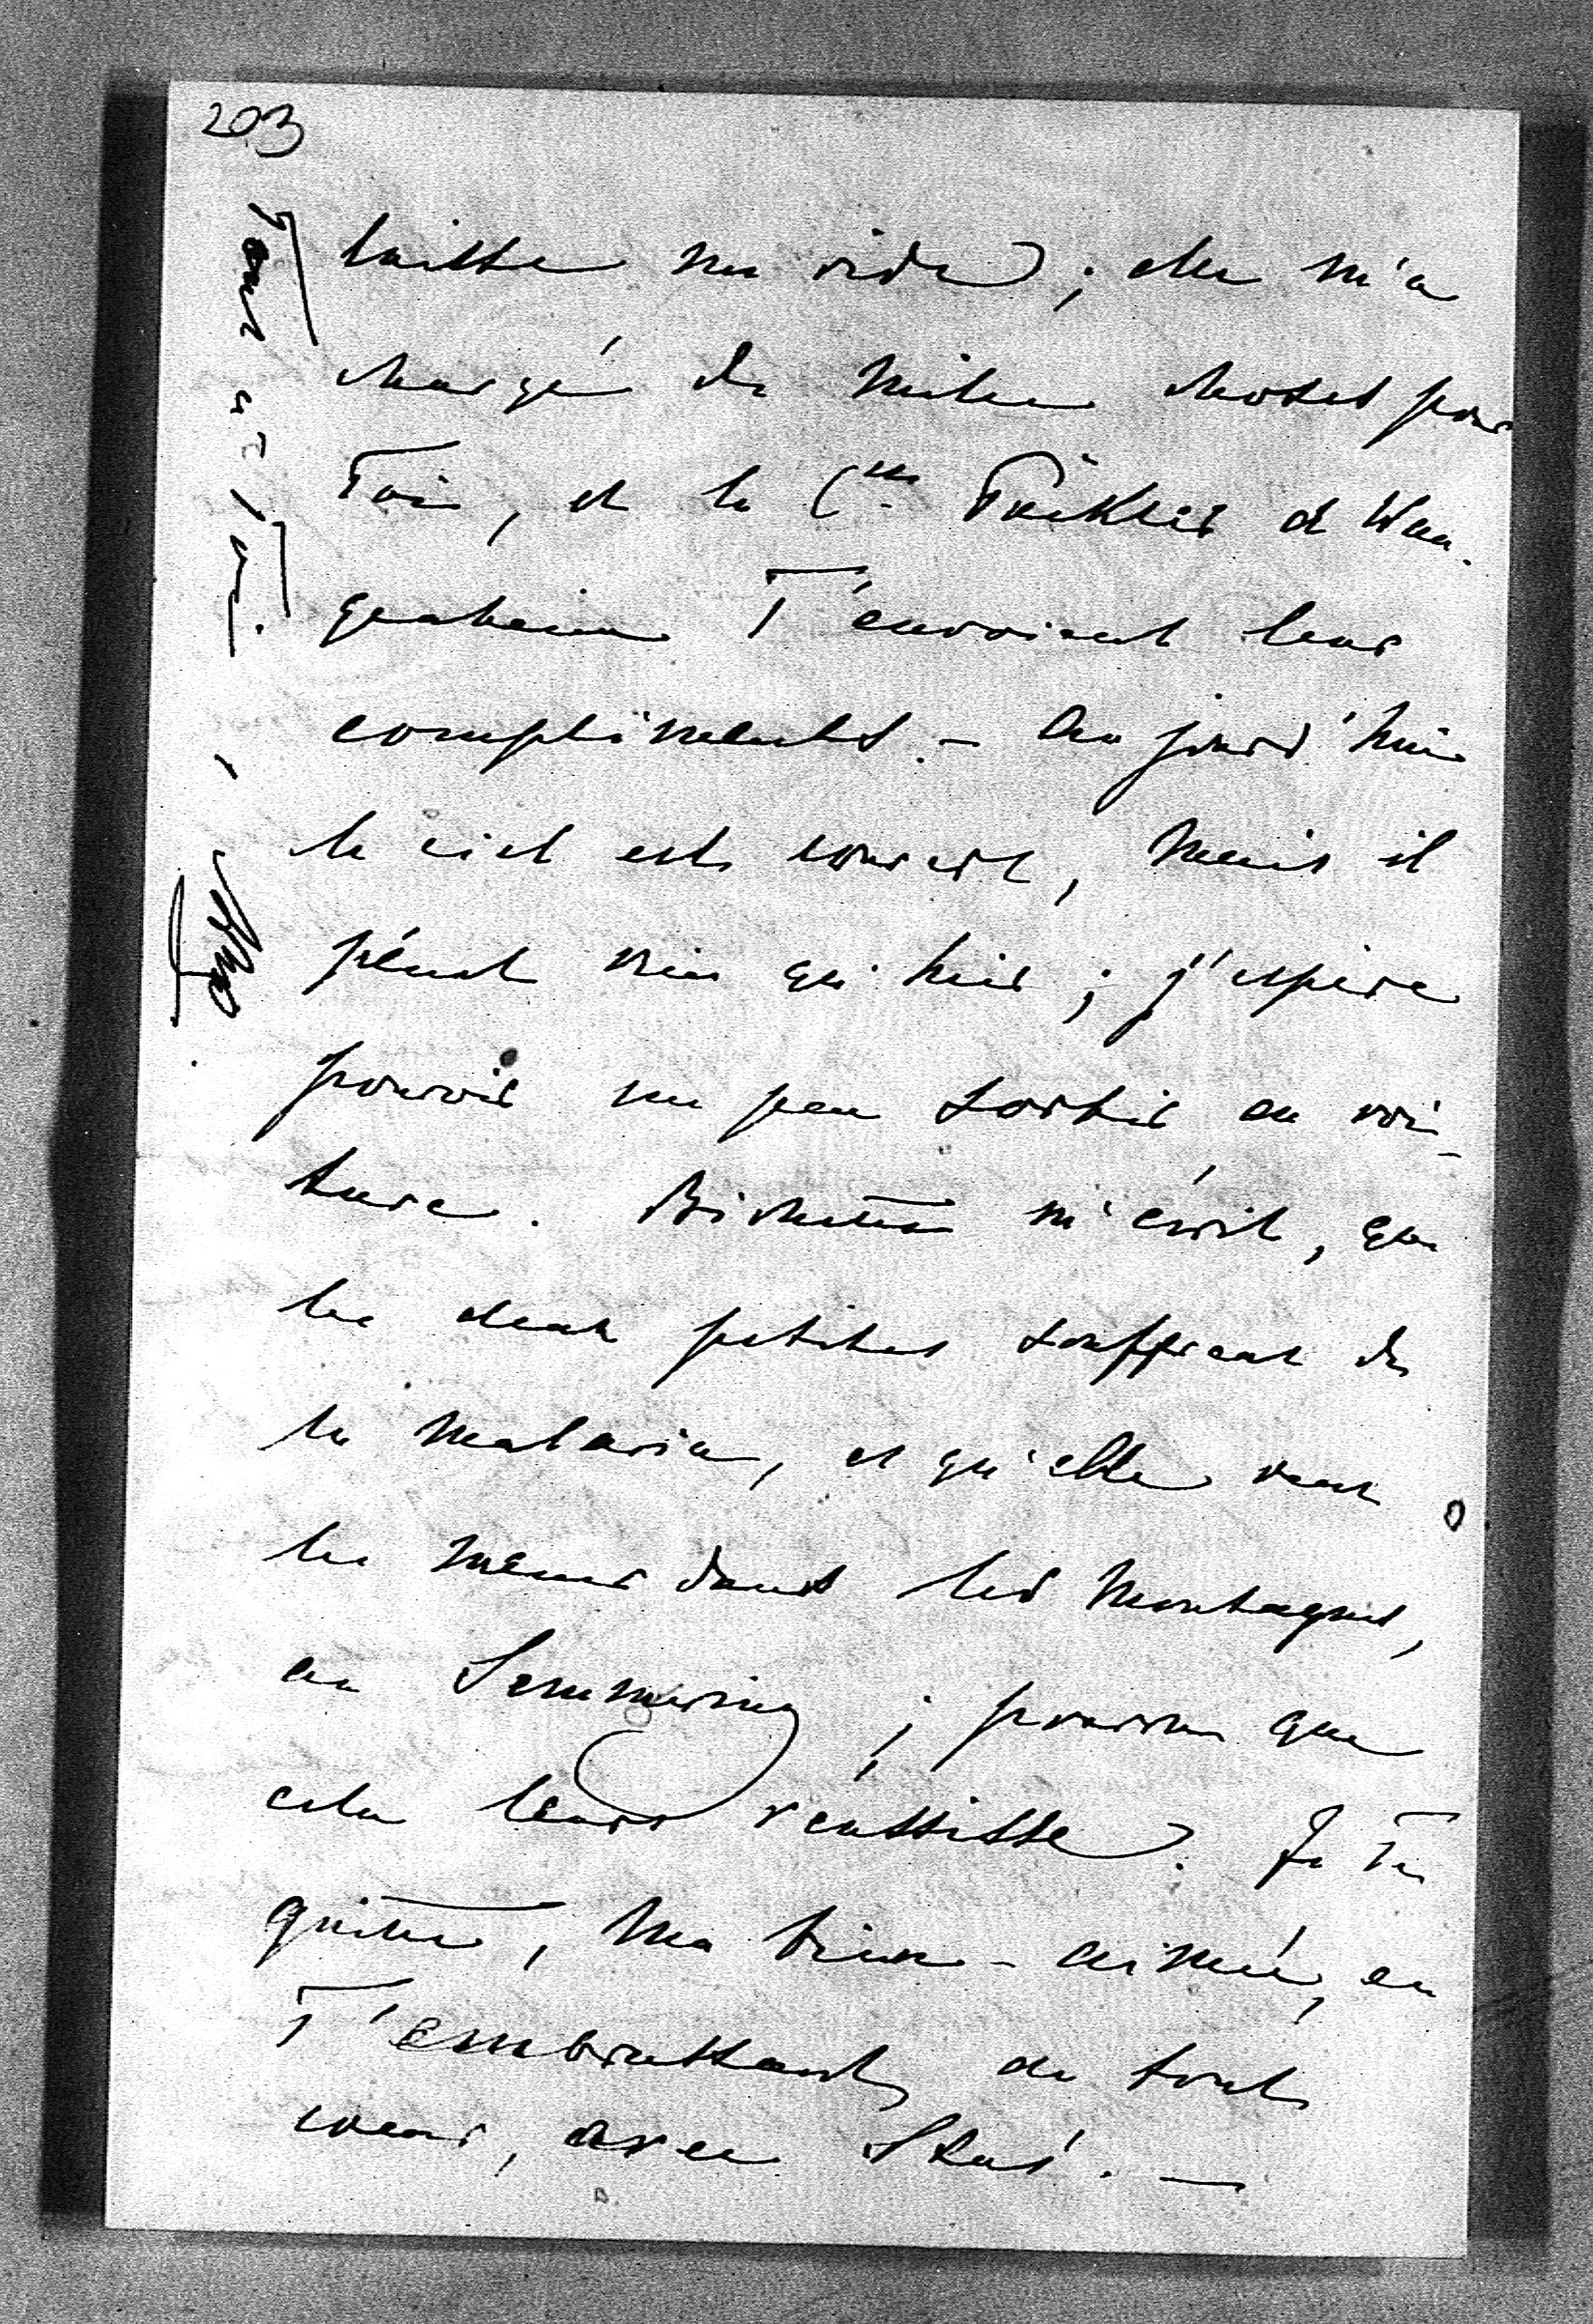 203
laisse un vide; elle m'a
chargé de mille choses pour
Toi, et le Cte Pükler et Wan-
genheim T'envoient leurs
compliments. – Aujourd'hui
le ciel est couvert, mais il
pleut moins qu'hier; j'espère
pouvoir un peu sortir en voi-
ture. Bichette m'écrit, que
les deux petites souffrent de
la malaria, et qu'elle veut
les mener dans les montagnes,
au Semmering; pourvu que
cela leurs réussisse. Je Te
quitte, ma bien-aimée, en
T'embrassant de tout
cœur, avec Stas. —